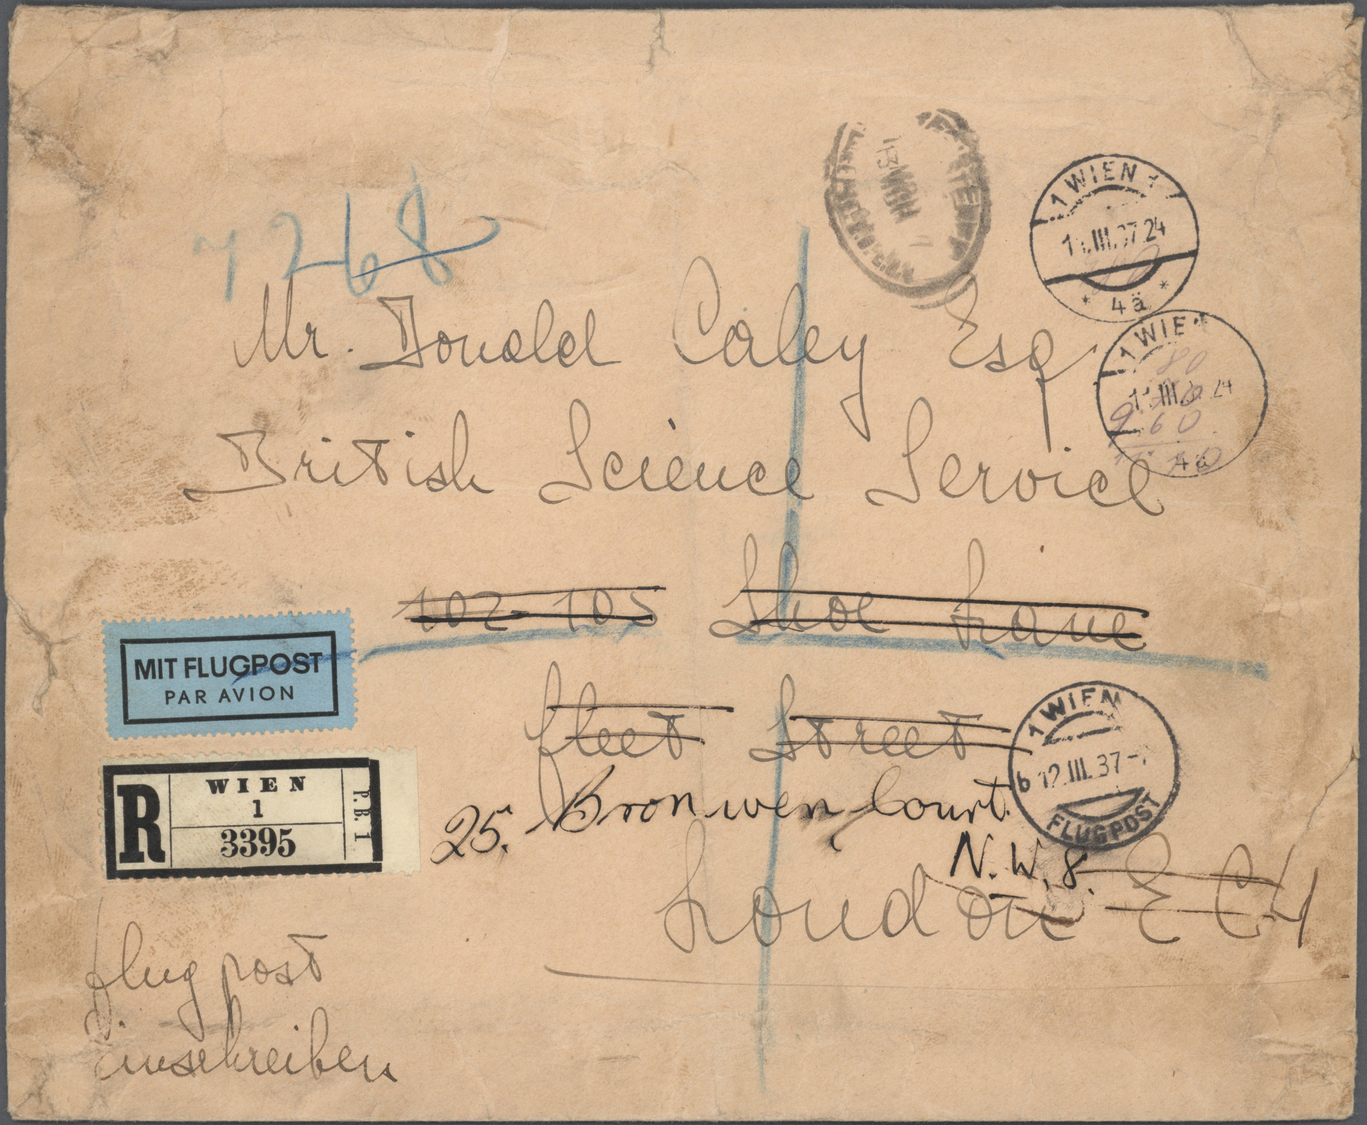 1 WIEN 1
III.37 24
* 4ä *
7268
Mr. Donald Caley Esq
1 WIEN
III 24
80
60
4ä
British Science Service
102-105 Shoe Lane
MIT FLUGPOST
PAR AVION
Fleet Street
1 WIEN
b 12.III.37-
FLUGPOST
R
WIEN
1
3395
P.B.1
25. Bronwen Court
N.W.8.
London E C 4
Flugpost
Einschreiben